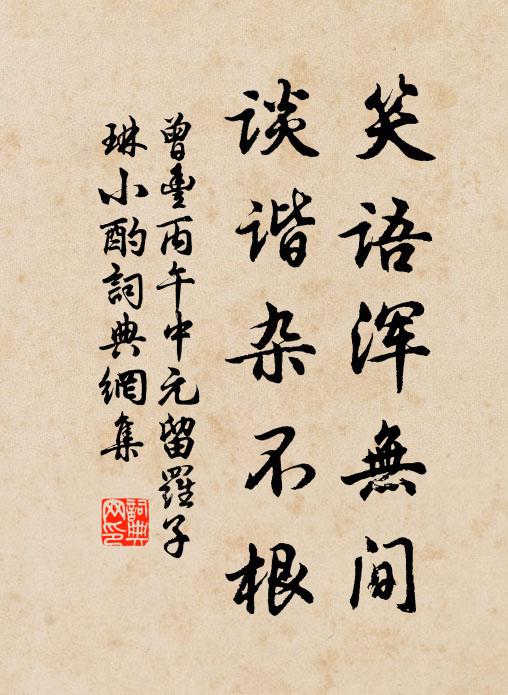 笑语浑無间
谈谐杂不根
曾豐丙午中元留羅子
琳小酌詞典網集
詞典
网印